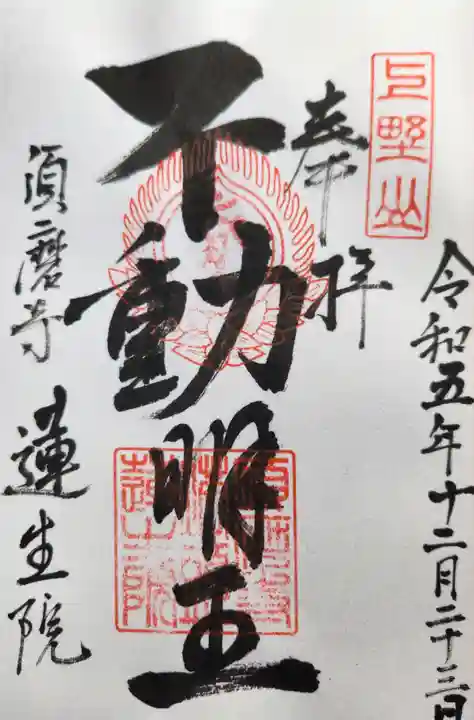 令和五年十二月二十三日
上野山
奉拝
不動明王
須磨寺
蓮生院